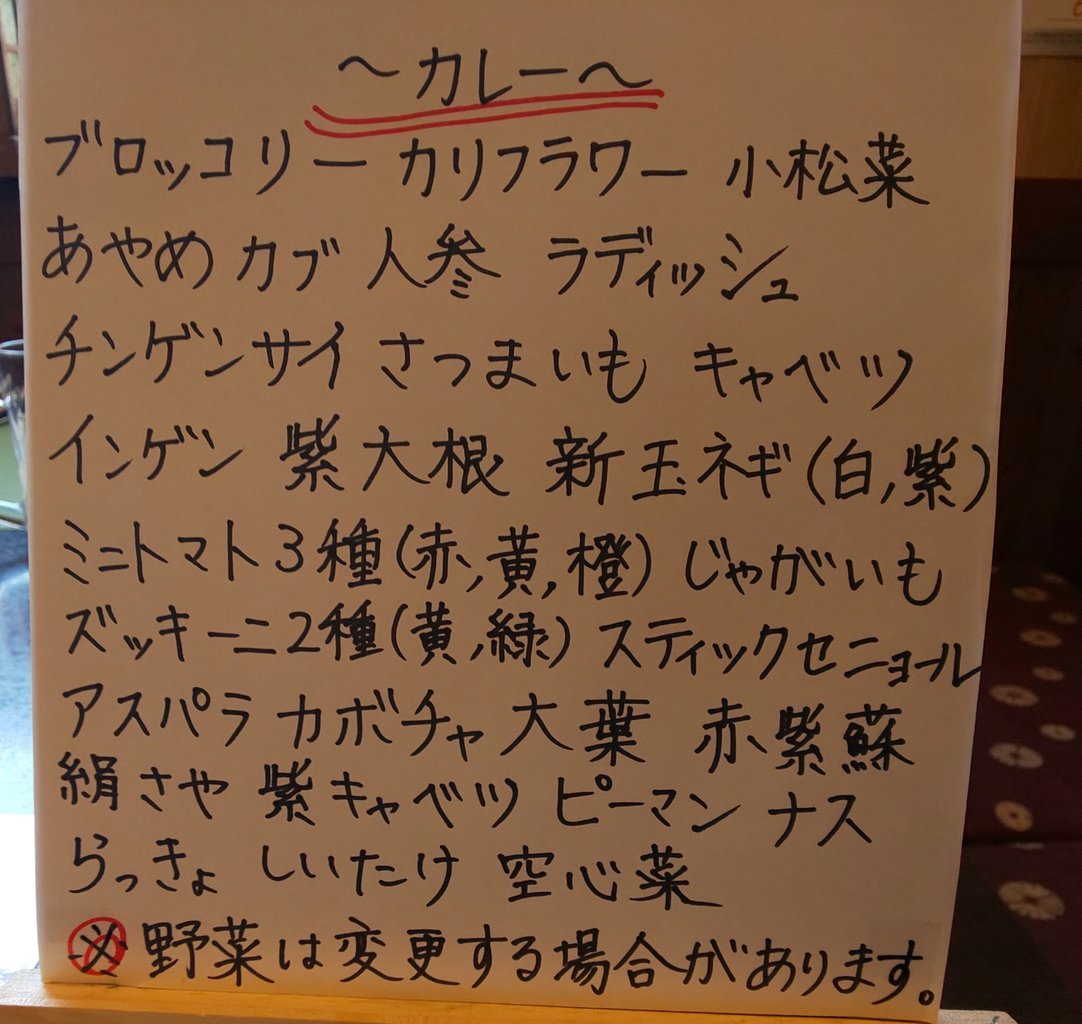 ～カレー～
ブロッコリー カリフラワー 小松菜
あやめカブ 人参 ラディッシュ
チンゲンサイ さつまいも キャベツ
インゲン 紫大根 新玉ネギ(白,紫)
ミニトマト3種(赤,黄,橙) じゃがいも
ズッキーニ2種(黄,緑) スティックセニョール
アスパラ カボチャ 大葉 赤紫蘇
絹さや 紫キャベツ ピーマン ナス
らっきょ しいたけ 空心菜
※野菜は変更する場合があります。